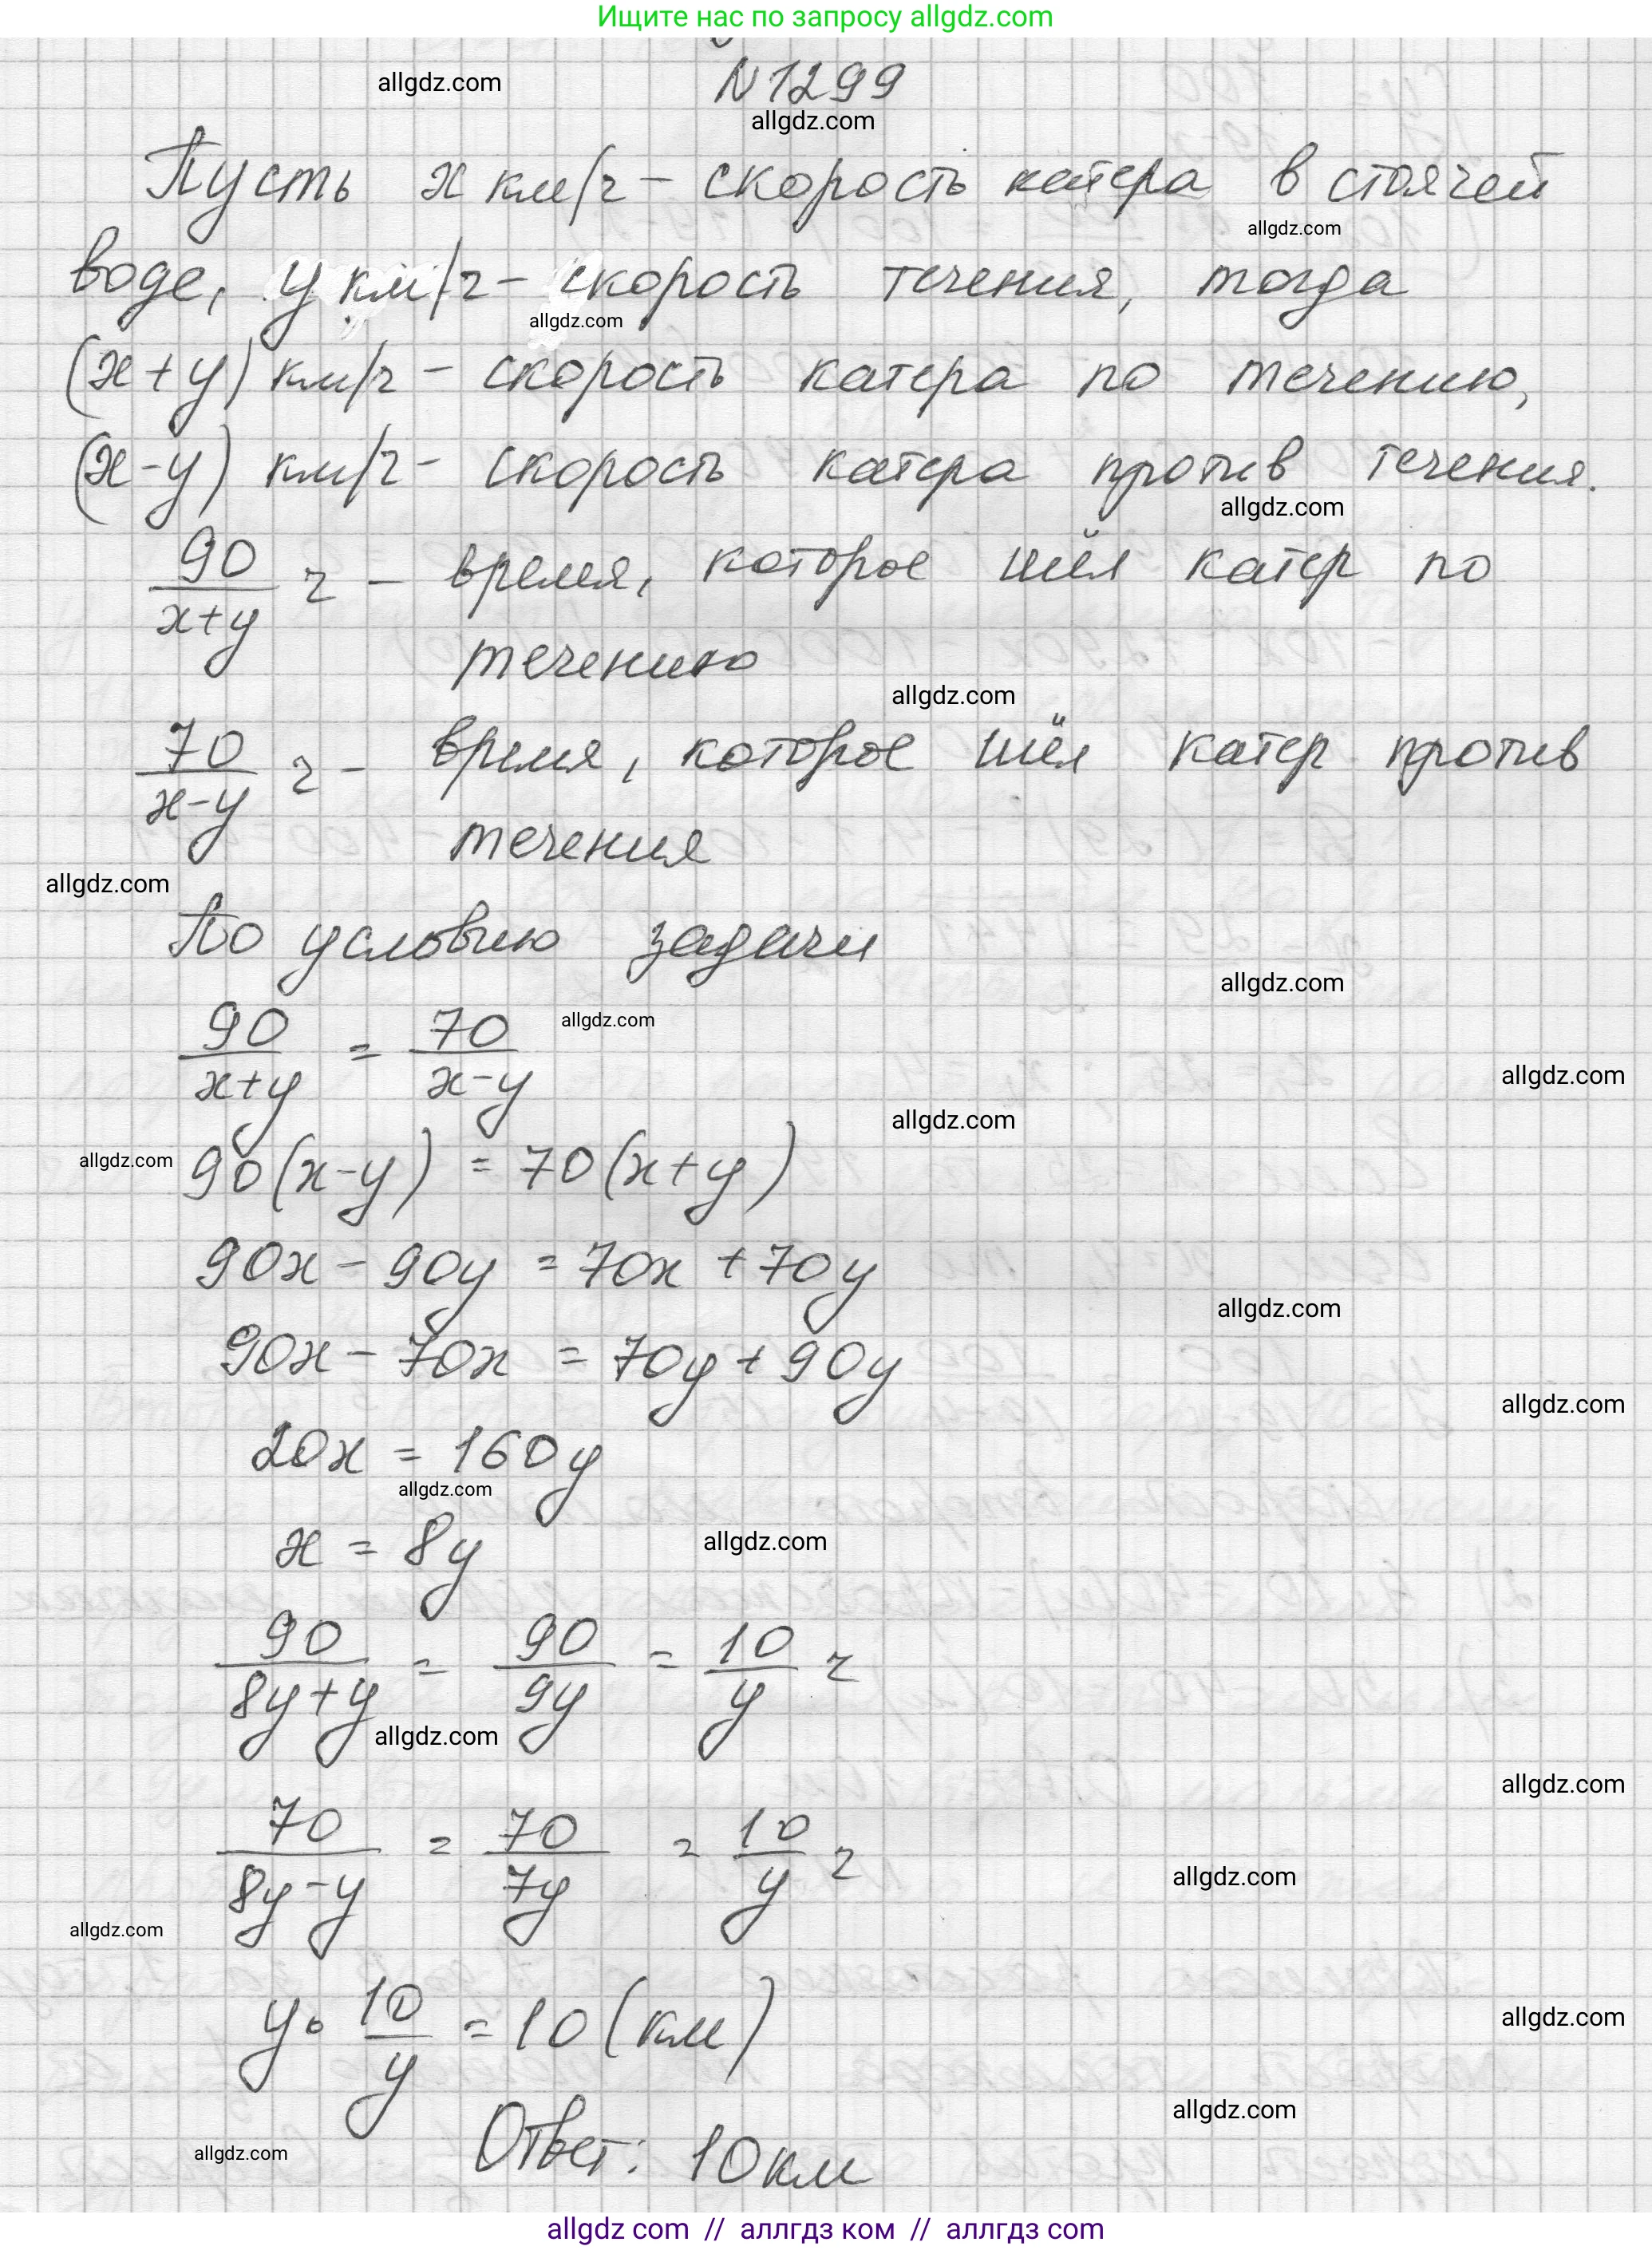 Ищите нас по запросу allgdz.com
allgdz.com
N 1299
allgdz.com
Пусть x км/ч – скорость катера в стоячей
allgdz.com
воде, y км/ч – скорость течения, тогда
allgdz.com
(x+y) км/ч – скорость катера по течению,
(x-y) км/ч – скорость катера против течения.
allgdz.com
90/(x+y) ч – время, которое шёл катер по
течению
allgdz.com
70/(x-y) ч – время, которое шёл катер против
течения
allgdz.com
По условию задачи
allgdz.com
90/(x+y) = 70/(x-y)
allgdz.com
allgdz.com
allgdz.com
allgdz.com
90(x-y) = 70(x+y)
90x - 90y = 70x + 70y
allgdz.com
90x - 70x = 70y + 90y
allgdz.com
20x = 160y
allgdz.com
x = 8y
allgdz.com
90/(8y+y) = 90/9y = 10/y ч
allgdz.com
allgdz.com
70/(8y-y) = 70/7y = 10/y ч
allgdz.com
allgdz.com
y · 10/y = 10 (км)
allgdz.com
allgdz.com
Ответ: 10 км
allgdz.com
allgdz com // аллгдз ком // аллгдз com